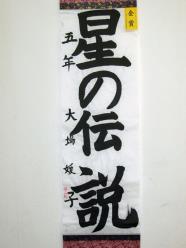 金賞
星の伝説
五年 大場媛子